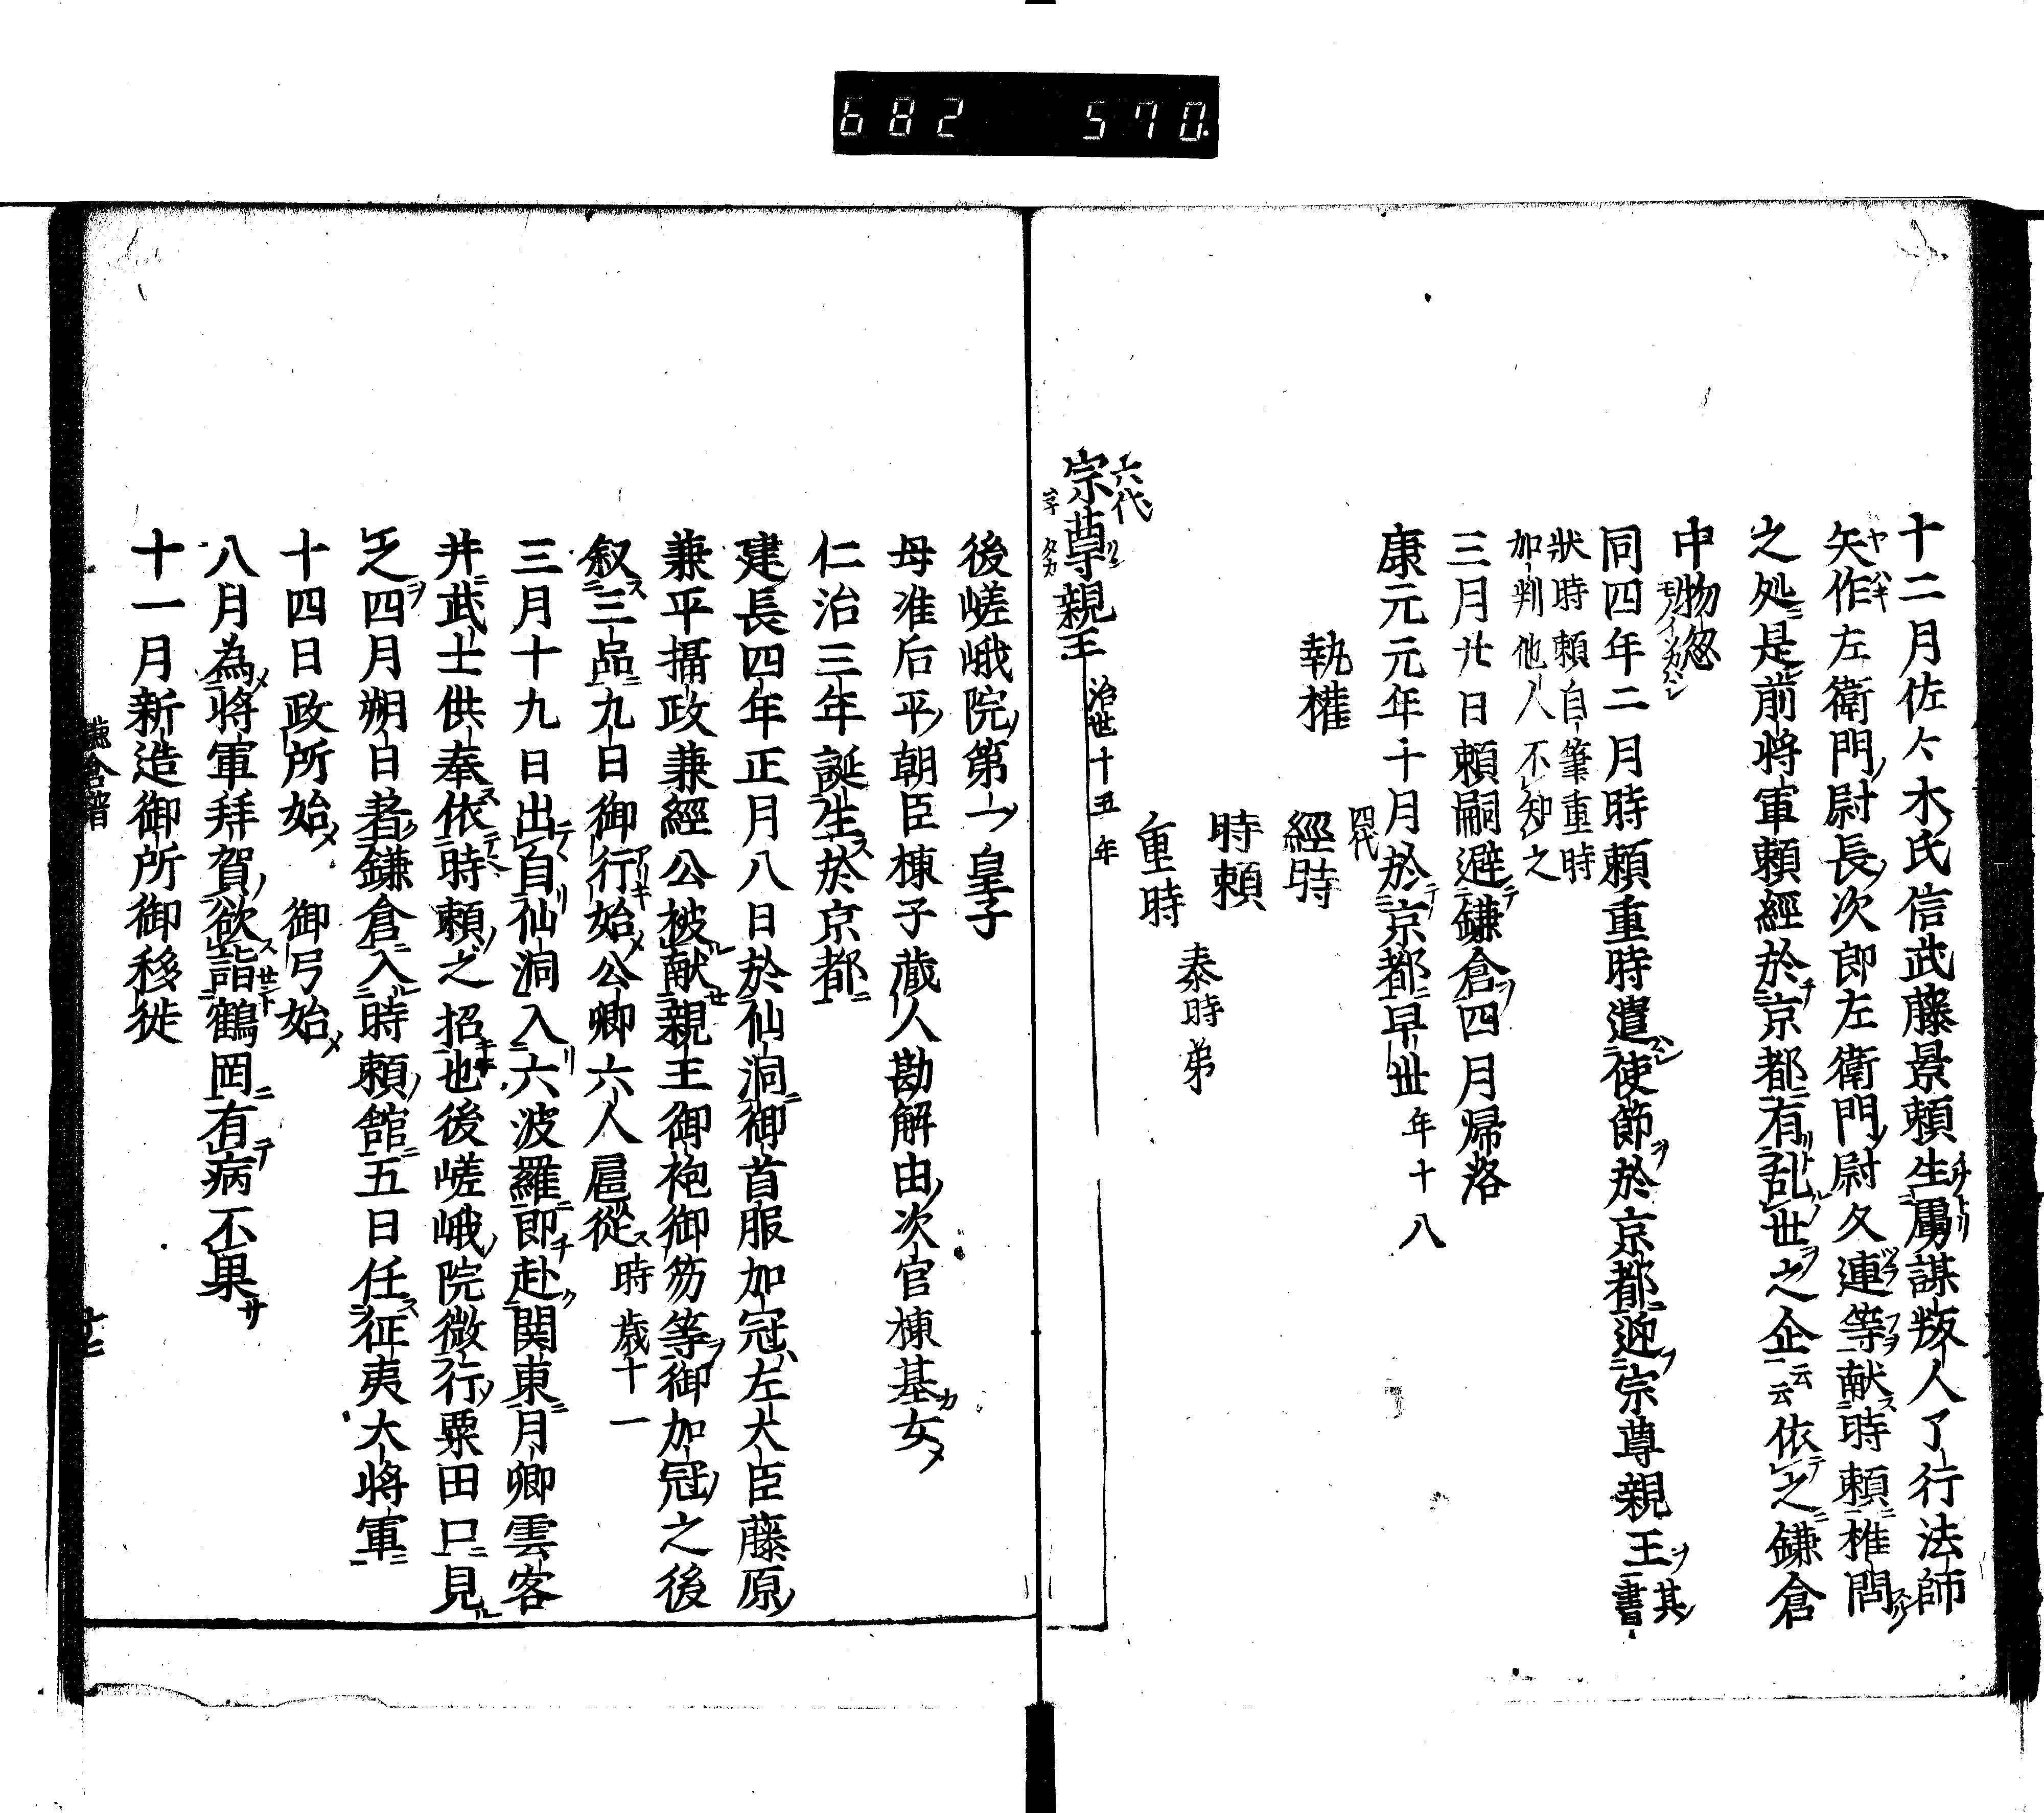 682 570.
十二月佐々木氏信武藤景頼生虜謀叛人了行法師
矢作左衛門尉長次郎左衛門尉久連等献時頼推問
之処是前将軍頼經於京都有乱世之企云云依之鎌倉
中物忩
同四年二月時頼重時遣使節於京都迎宗尊親王其書
狀時頼自筆重時
加判他人不知之
三月廿日頼嗣避鎌倉四月帰洛
康元元年十月於京都早世年十八
執權
四代
經時
時頼
重時 泰時弟
六代
宗尊親王 治世十五年
後嵯峨院第一皇子
母准后平朝臣棟子蔵人勘解由次官棟基女
仁治三年誕生於京都
建長四年正月八日於仙洞御首服加冠左大臣藤原
兼平攝政兼經公被献親王御袍御笏等御加冠之後
叙三品九日御行始公卿六人扈從時歳十一
三月十九日出自仙洞入六波羅即赴関東月卿雲客
并武士供奉依時頼之招也後嵯峨院微行粟田口見
之四月朔日著鎌倉入時頼館五日任征夷大将軍
十四日政所始 御弓始
八月為将軍拜賀欲詣鶴岡有病不果
十一月新造御所御移徙
鎌倉譜